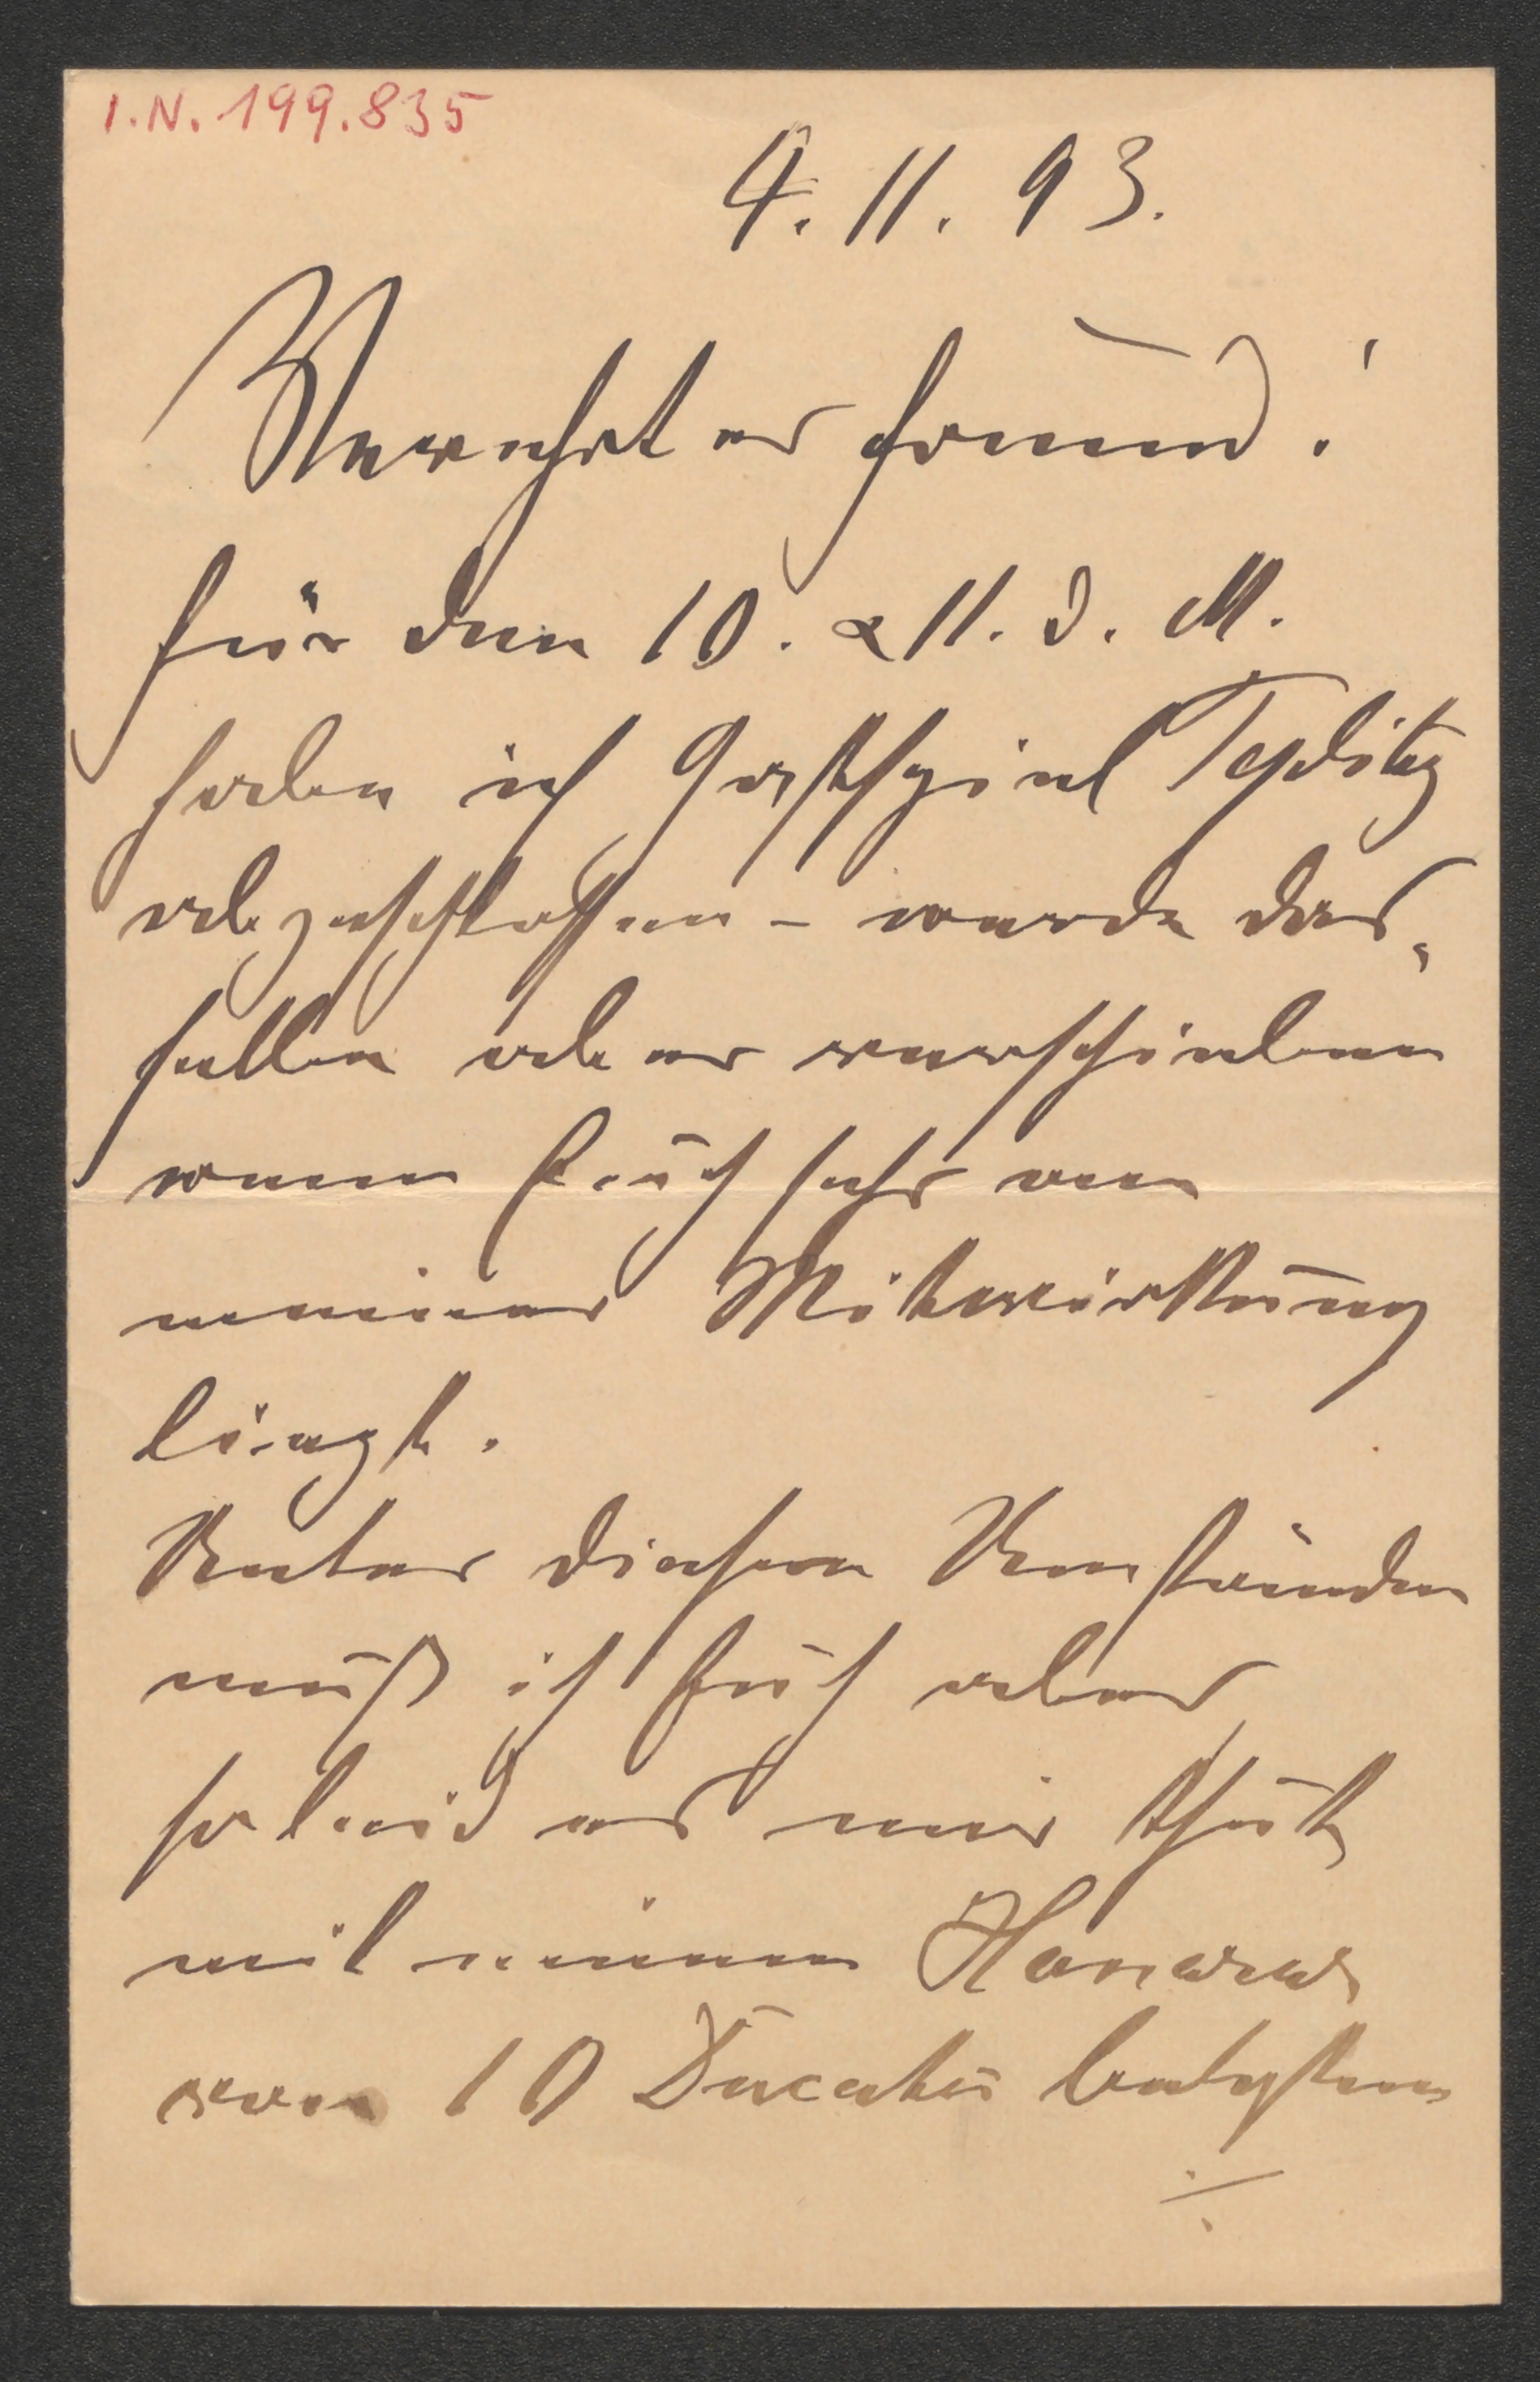 I.N. 199.835
4. 11. 93.
Verehrter Freund!
Für den 10. & 11. d. M.
habe ich Gastspiel Teplitz
abgeschlossen – werde das-
selbe aber verschieben
wenn Euch sehr an
meiner Mitwirkung
liegt.
Unter diesen Umständen
muß ich Euch aber
so leid es mir thut
mit einem Honorar
von 10 Ducaten belasten
./.